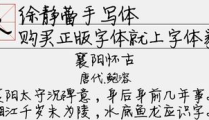 徐静蕾手写体
购买正版字体就上字体
襄阳怀古
唐代 鲍溶
襄阳太守沉碑意，身后身前几年事。
湘江千岁未为陵，水底鱼龙应识字。